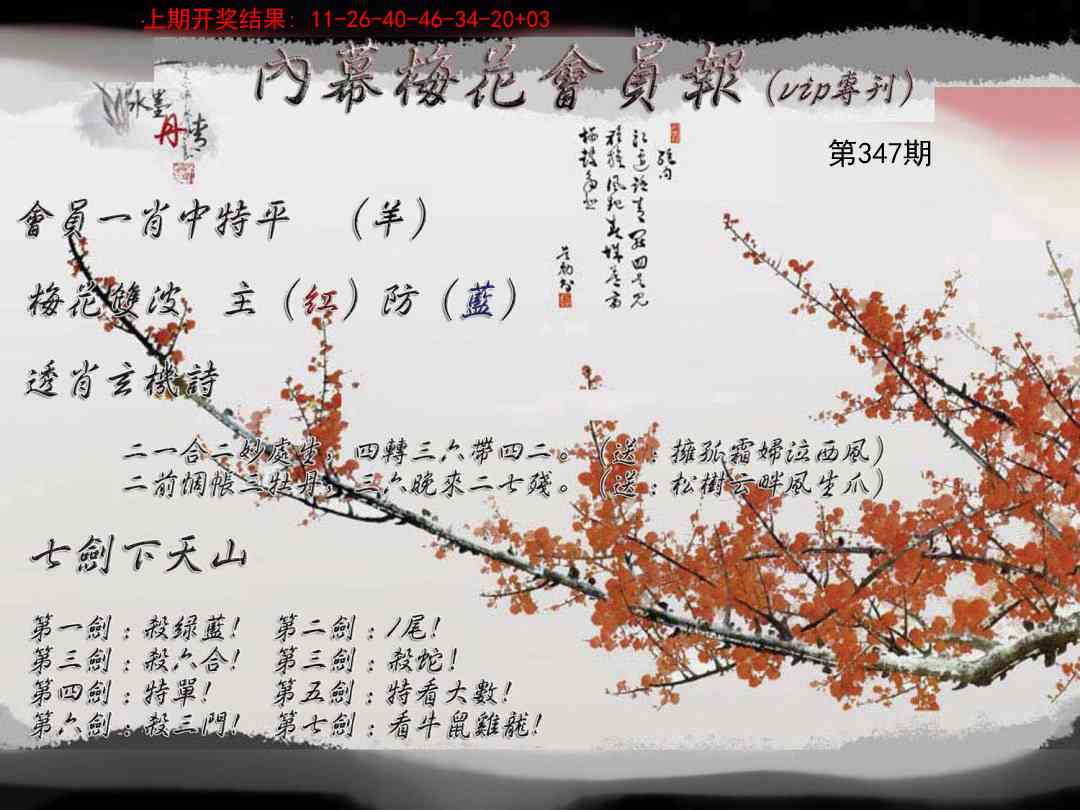 上期开奖结果: 11-26-40-46-34-20+03
內幕梅花會員報(vip專刊)
水墨
丹青
第347期
會員一肖中特平 (羊)
梅花雙波 主(紅)防(藍)
透肖玄機詩
二一合二妙處生,四轉三六帶四二。(送:擁孤霜婦泣西風)
二前惆悵三牡丹,三六晚來二七殘。(送:松樹云畔風生爪)
七劍下天山
第一劍:殺绿藍! 第二劍:1尾!
第三劍:殺六合! 第三劍:殺蛇!
第四劍:特單! 第五劍:特看大數!
第六劍:殺三門! 第七劍:看牛鼠雞龍!